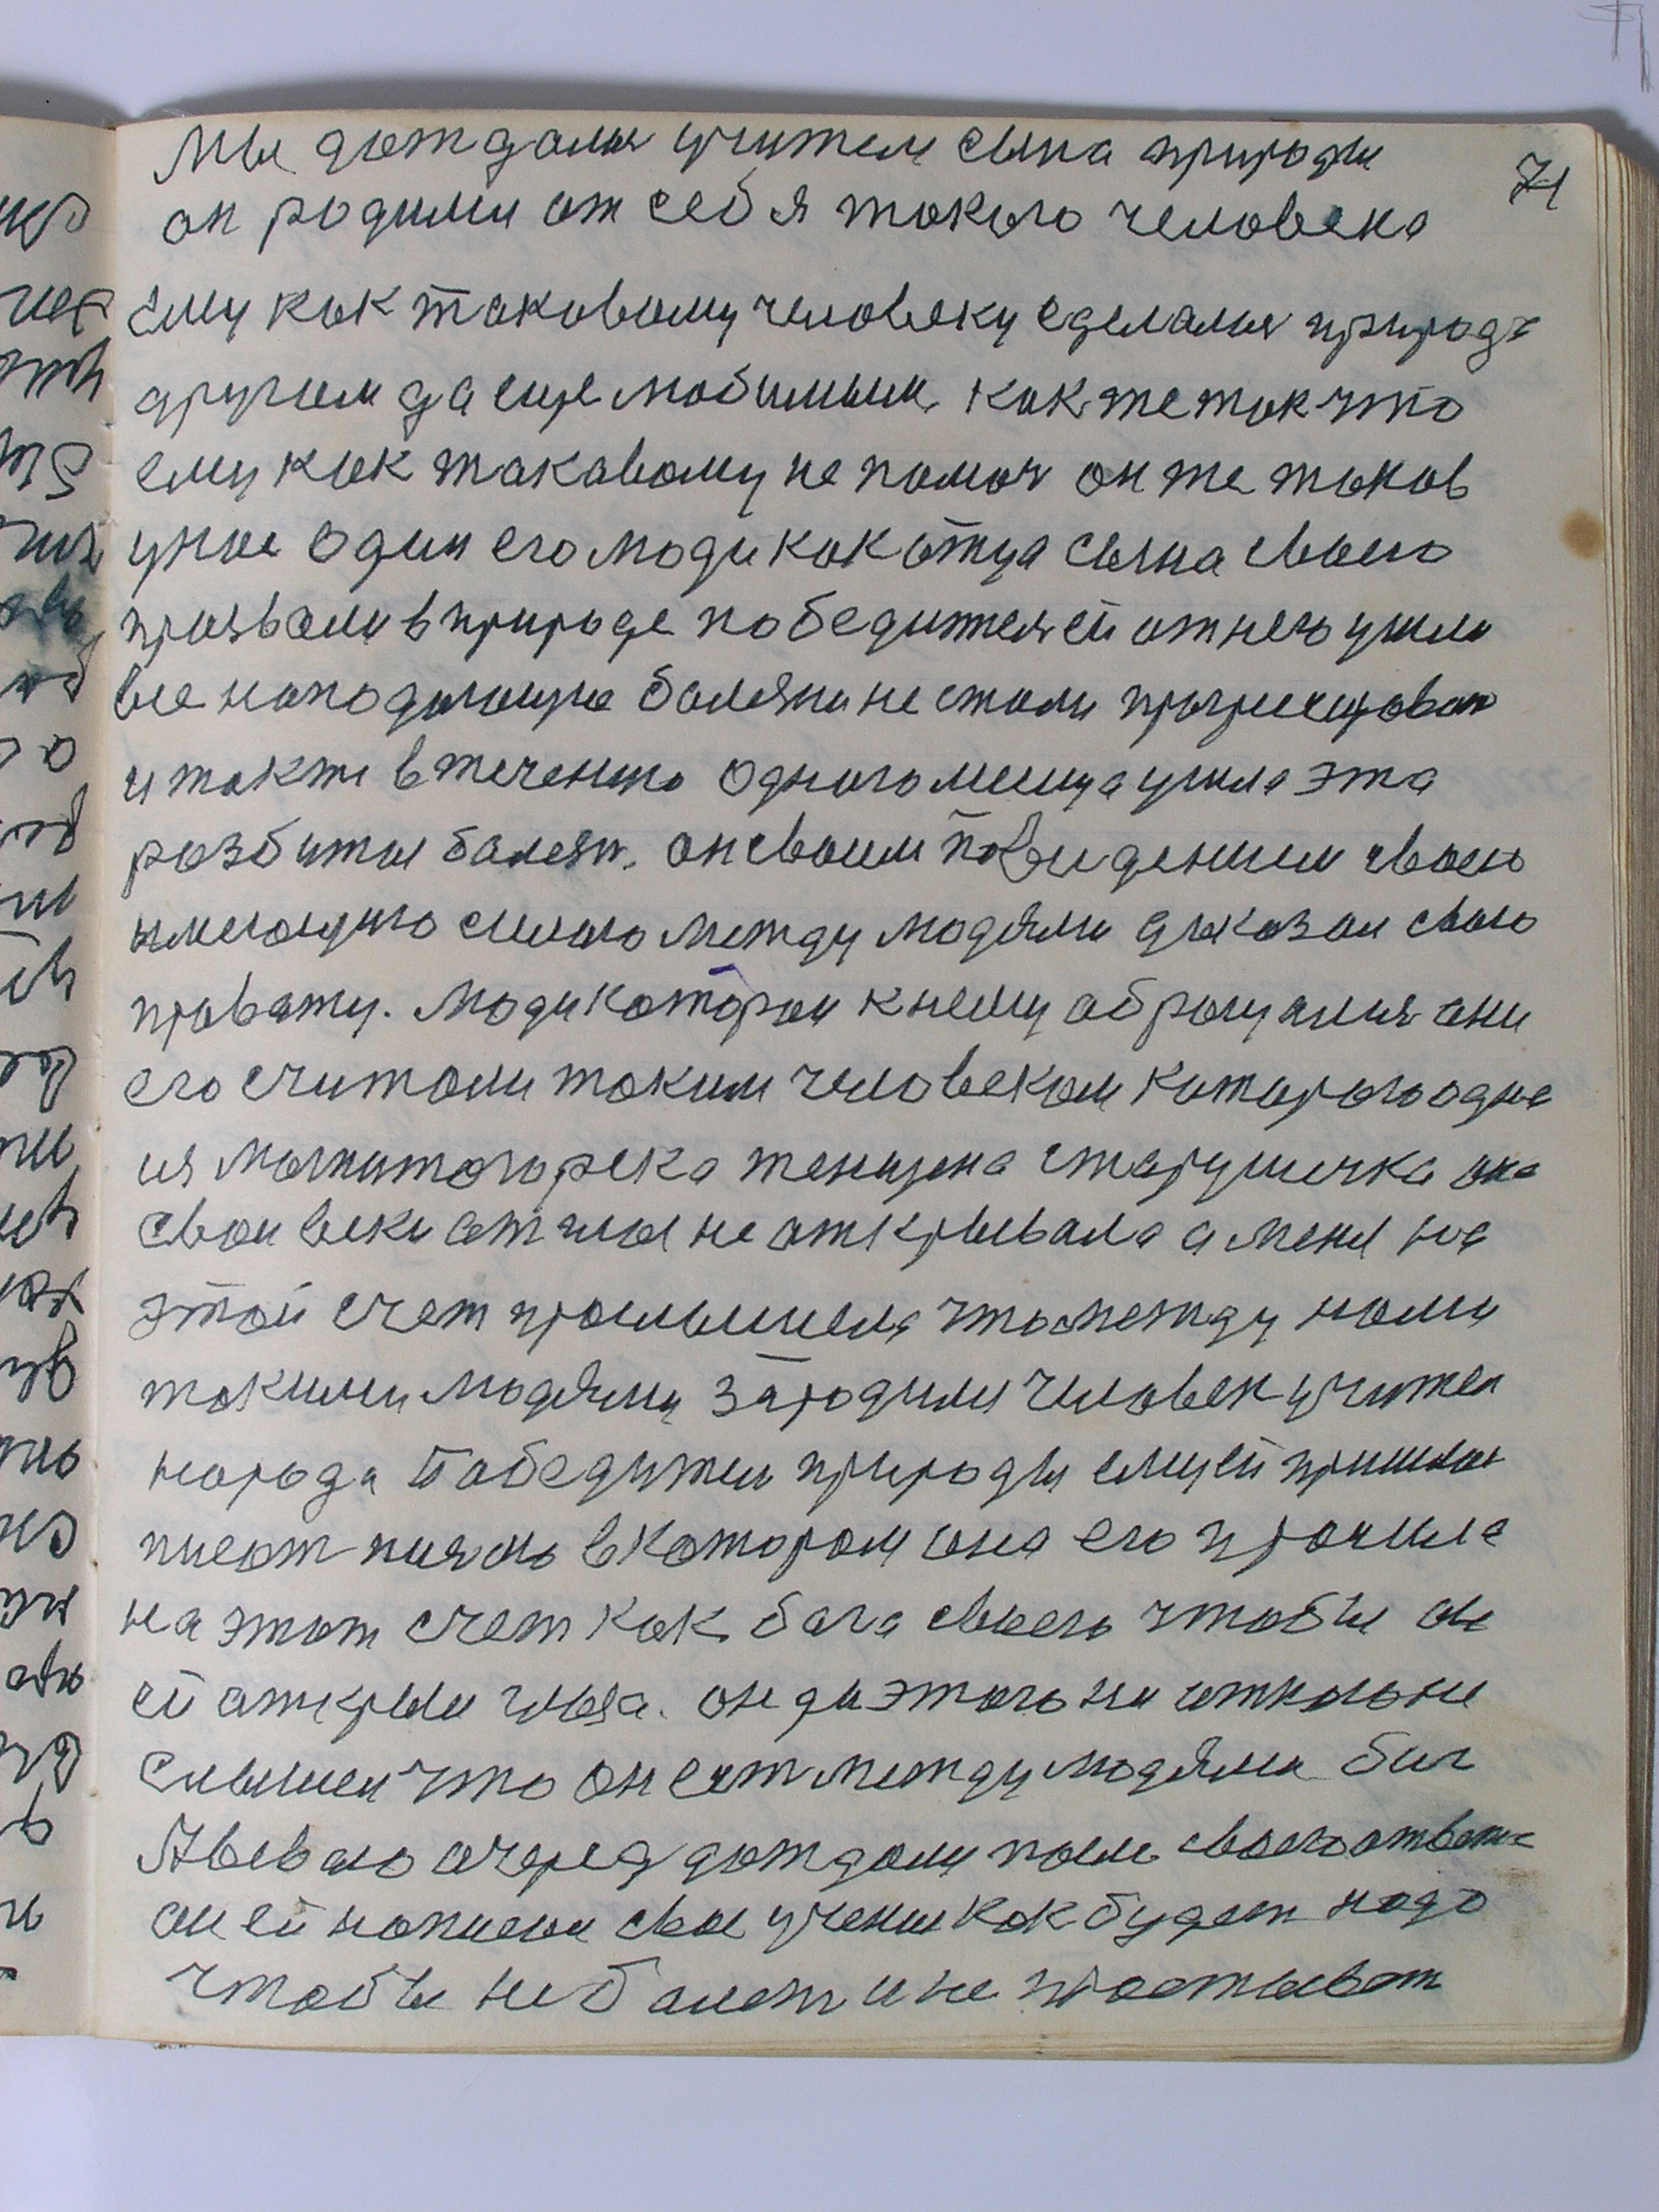 71
Мы дождалис учителя сына природы
он родился от себя токого человека
ему как таковому человеку сделалися природа
другим да еще любимым. как же так что
ему как такавому не помоч он же таков
у нас один его люди как отца сына своего
призвали в природе победителей от него ушли
все нападающие балезни не стали прогресироват
и такжи в течению одного месица ушла эта
розбитая балезн. он своим поведением свою
имеющую силою между людями доказал свою
правату. люди которые к нему обращалися они
его считали таким человеком каторого одна
из Магнитогорска женщена старушечка она
свои веки от глаз не открывала а меня на
этой счет прослышела что между нами
такими людями зародился человек учител
народа победител природы ему ей пришлос
писат писмо в котором она его просила
на этот счет как бога своего чтобы он
ей аткрыл глаза. он до этого ни от кого не
слышел что он ест между людями бог
А в свою очеред дождали после своего ответа
он ей написал свое учение как будет надо
чтобы не болет и не простыват